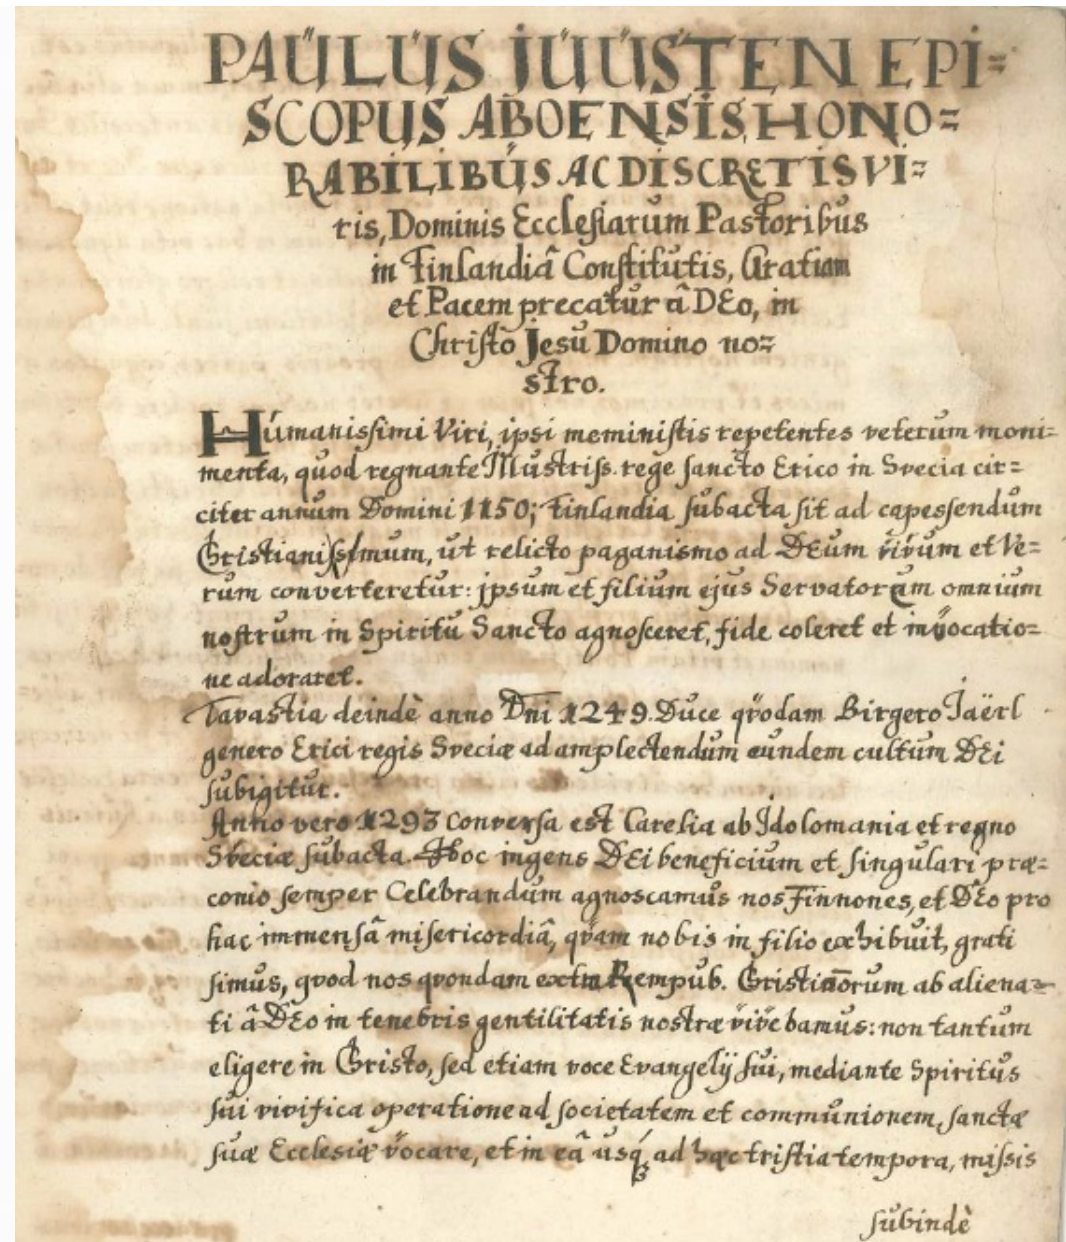 PAULUS JUUSTEN EPI=
SCOPUS ABOENSIS, HONO=
RABILIBUS AC DISCRETIS VI=
ris, Dominis Ecclesiarum Pastoribus
in Finlandiâ Constitutis, Gratiam
et Pacem precatur â DEo, in
Christo Jesu Domino no=
stro.
Humanissimi Viri, ipsi meministis repetentes veterum moni=
menta, quod regnante Illustriss. rege sancto Erico in Svecia cir=
citer annum Domini 1150; Finlandia subacta sit ad capessendum
Christianissimum, ut relicto paganismo ad DEum vivum et Ve=
rum converteretur: jpsum et filium ejus Servatorem omnium
nostrum in Spiritu Sancto agnosceret, fide coleret et invocatio=
ne adoraret.
Tavastia deindè anno Dni 1249. Duce qvodam Birgero Jaërl
genero Erici regis Sveciæ ad amplectendum eundem cultum DEi
subigitur.
Anno vero 1293 Conversa est Carelia ab Jdolomania et regno
Sveciæ subacta. Hoc ingens DEi beneficium et singulari præ=
conio semper Celebrandum agnoscamus nos Finnones, et DEo pro
hac immensâ misericordiâ, qvam nobis in filio exhibuit, grati
simus, qvod nos qvondam extra Rempub. Christianorum ab aliena=
ti â DEo in tenebris gentilitatis nostræ vivebamus: non tantum
eligere in Christo, sed etiam voce Evangelij sui, mediante Spiritus
sui vivifica operatione ad societatem et communionem, sanctæ
suæ Ecclesiæ vocare, et in eâ usq́; ad hæc tristia tempora, missis
subindè